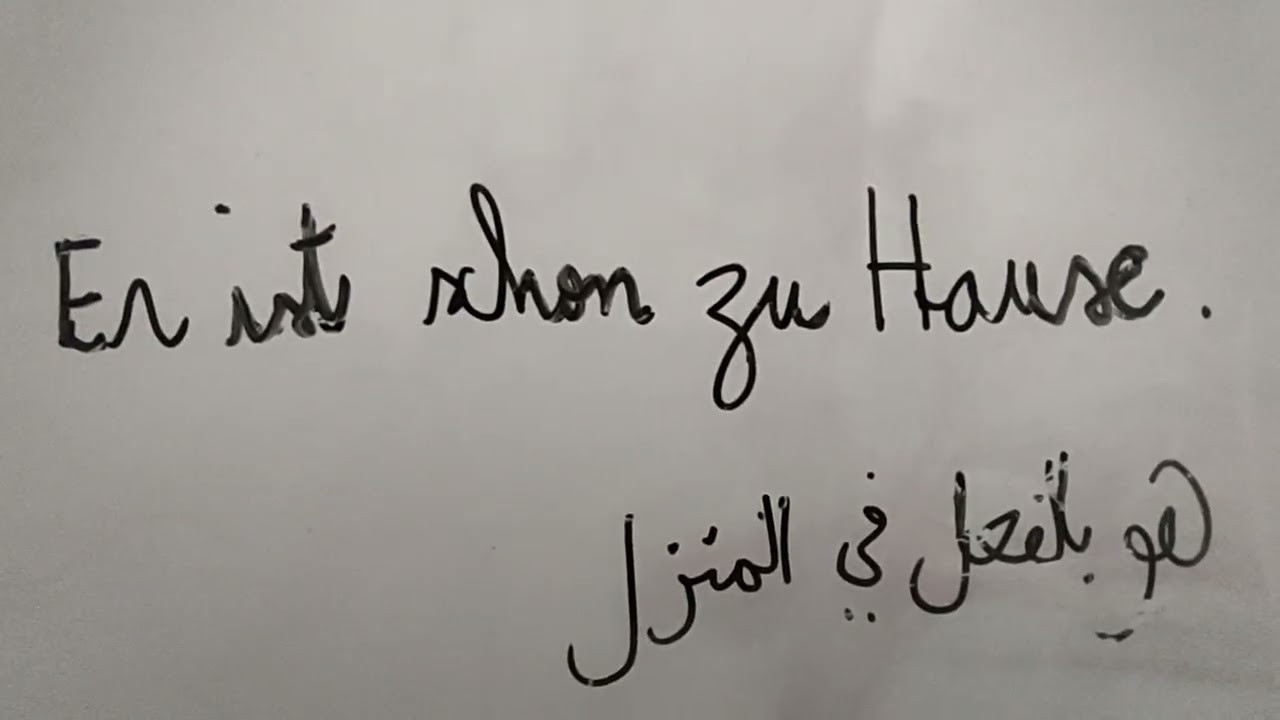 Er ist schon zu Hause.
هو بالفعل في المنزل